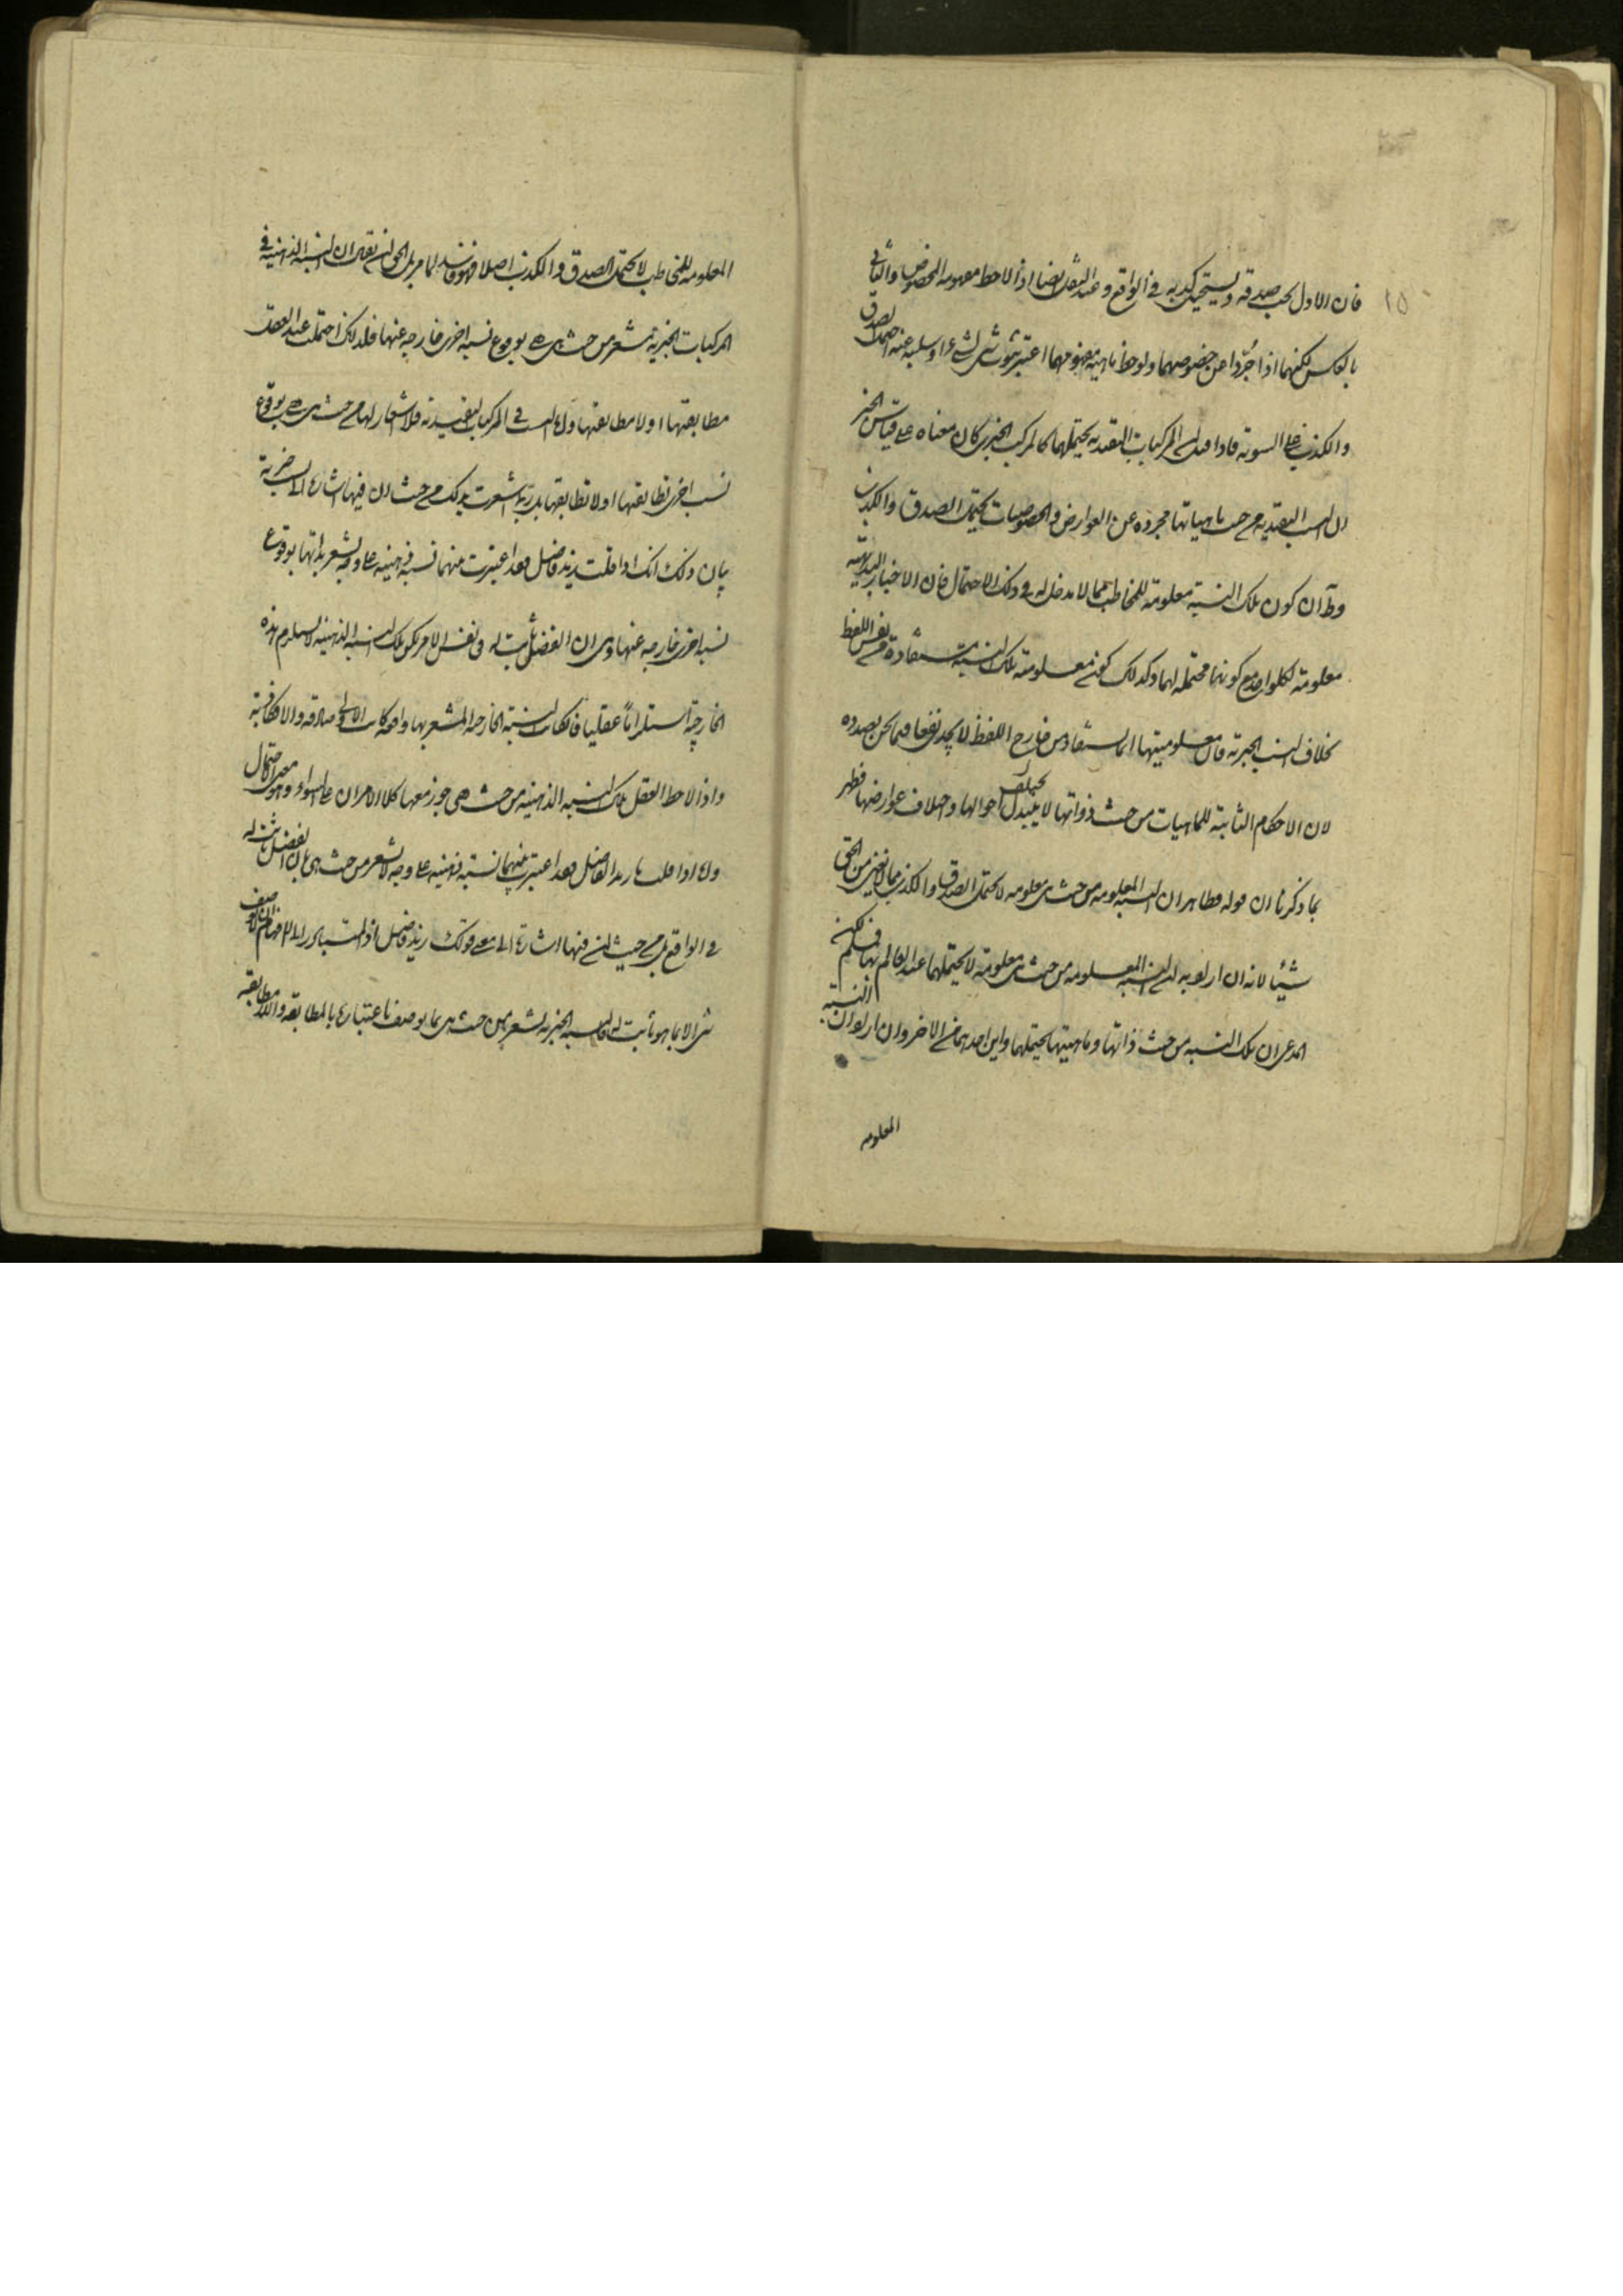 ١٥
فان الاول يجب صدقه ويستحيل كذبه في الواقع وعند العقل ايضا اذا لاحظ مفهومه المخصوص والثاني
بالعكس لكنهما اذا جُرّدا عن خصوصهما ولوحظ ماهية مفهومهما اعتبر ثبوت شئ لشئ او سلبه عنه احتملا الصدق
والكذب على السوية فاذا قيل المركبات التقييدية يحتملهما كالمركب الخبري كان معناه على قياس الخبر
ان النسب التقييدية من حيث ماهياتها مجردة عن العوارض والخصوصيات يحتمل الصدق والكذب
وظ ان كون تلك النسبة معلومة للمخاطب مما لا مدخل له في ذلك الاحتمال فان الاخبار البديهية
معلومة لكل واحد مع كونها محتملة لهما وكذلك كون معلومية تلك النسبة مستفادة من نفس اللفظ
بخلاف النسب الخبرية فان معلوميتها انما يستفاد من خارج اللفظ لا يجدي نفعا فيما نحن بصدده
لان الاحكام الثابتة للماهيات من حيث ذواتها لا يتبدل بتبدل احوالها واختلاف عوارضها فظهر
بما ذكرنا ان قوله فظاهر ان النسبة المعلومة من حيث هي معلومة لا يحتمل الصدق والكذب مما لا يغني من الحق
شيئا لانه ان اراد به ان النسبة المعلومة من حيث هي معلومة لا يحتملهما عند العالم بها فمسلم لكن
المدعى ان تلك النسبة من حيث ذاتها وماهيتها يحتملهما واين احدهما من الاخر وان اراد ان النسبة
المعلومه
المعلومه للمخاطب لا يحتمل الصدق والكذب اصلا فهو فاسد لما مر بل الحق ان يقال ان النسبة الذهنية في
المركبات الخبرية تشعر من حيث هي هي بوقوع نسبة اخرى خارجة عنها فلذلك احتملت عند العقل
مطابقتها او لا مطابقتها واما النسب في المركبات التقييدية فلا اشعار لها من حيث هي هي بوقوع
نسبة اخرى تطابقها او لا تطابقها بل ربما اشعرت بذلك من حيث ان فيها اشارة الى نسبة خبرية
بيان ذلك انك اذا قلت زيد فاضل فقد اعتبرت بينهما نسبة ذهنية على وجه يشعر بذاتها بوقوع
نسبة اخرى خارجة عنها وهي ان الفضل ثابت له في نفس الامر لكن تلك النسبة الذهنية لا يستلزم هذه
الخارجية استلزاما عقليا فان كانت النسبة الخارجة المشعر بها واقعة كانت الاولى صادقة والا فكاذبة
واذا لاحظ العقل تلك النسبة الذهنية من حيث هي هي جوز معها كلا الامرين على السواء وهو معنى الاحتمال
واما اذا قلت يا زيد الفاضل فقد اعتبرت بينهما نسبة ذهنية على وجه لا يشعر من حيث هي بان الفضل ثابت له
في الواقع بل من حيث ان فيها اشارة الى معنى قولك زيد فاضل اذ المتبادر الى الافهام ان لا يوصف
شئ الا بما هو ثابت له فالنسبة الخبرية تشعر من حيث هي بما يوصف باعتباره بالمطابقة واللامطابقة